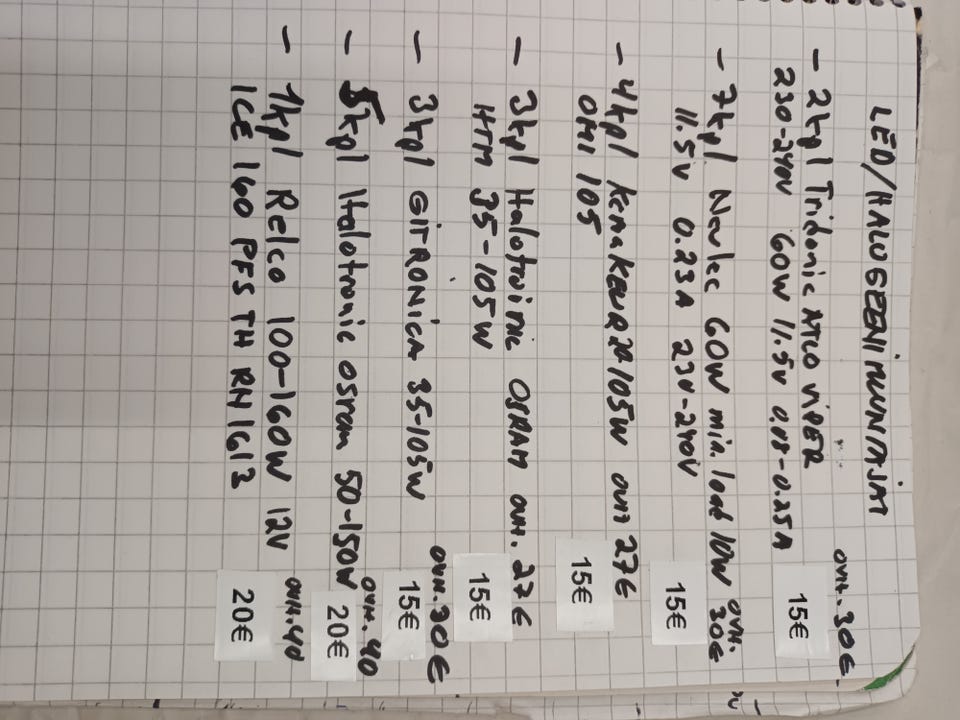 LED/HALOGEENIMUUNTAJAT
- 2kpl Tridonic ATCO VIPER OVH. 30€.
230-240V 60W 11.5V 0.08-0.25A 15€
- 7kpl Nevlec 60W min. load 10W OVH. 30€
11.5V 0.23A 230-240V 15€
- 4kpl KEUR 20/105W OVH 27€
OMI 105 15€
- 3kpl Halotronic OSRAM OVH. 27€
HTM 35-105W 15€
- 3kpl GITRONICA 35-105W OVH. 30€
15€
- 5kpl Halotronic osram 50-150W OVH. 40
20€
- 1kpl Relco 100-160W 12V OVH. 40
ICE 160 PFS TH RN1613 20€